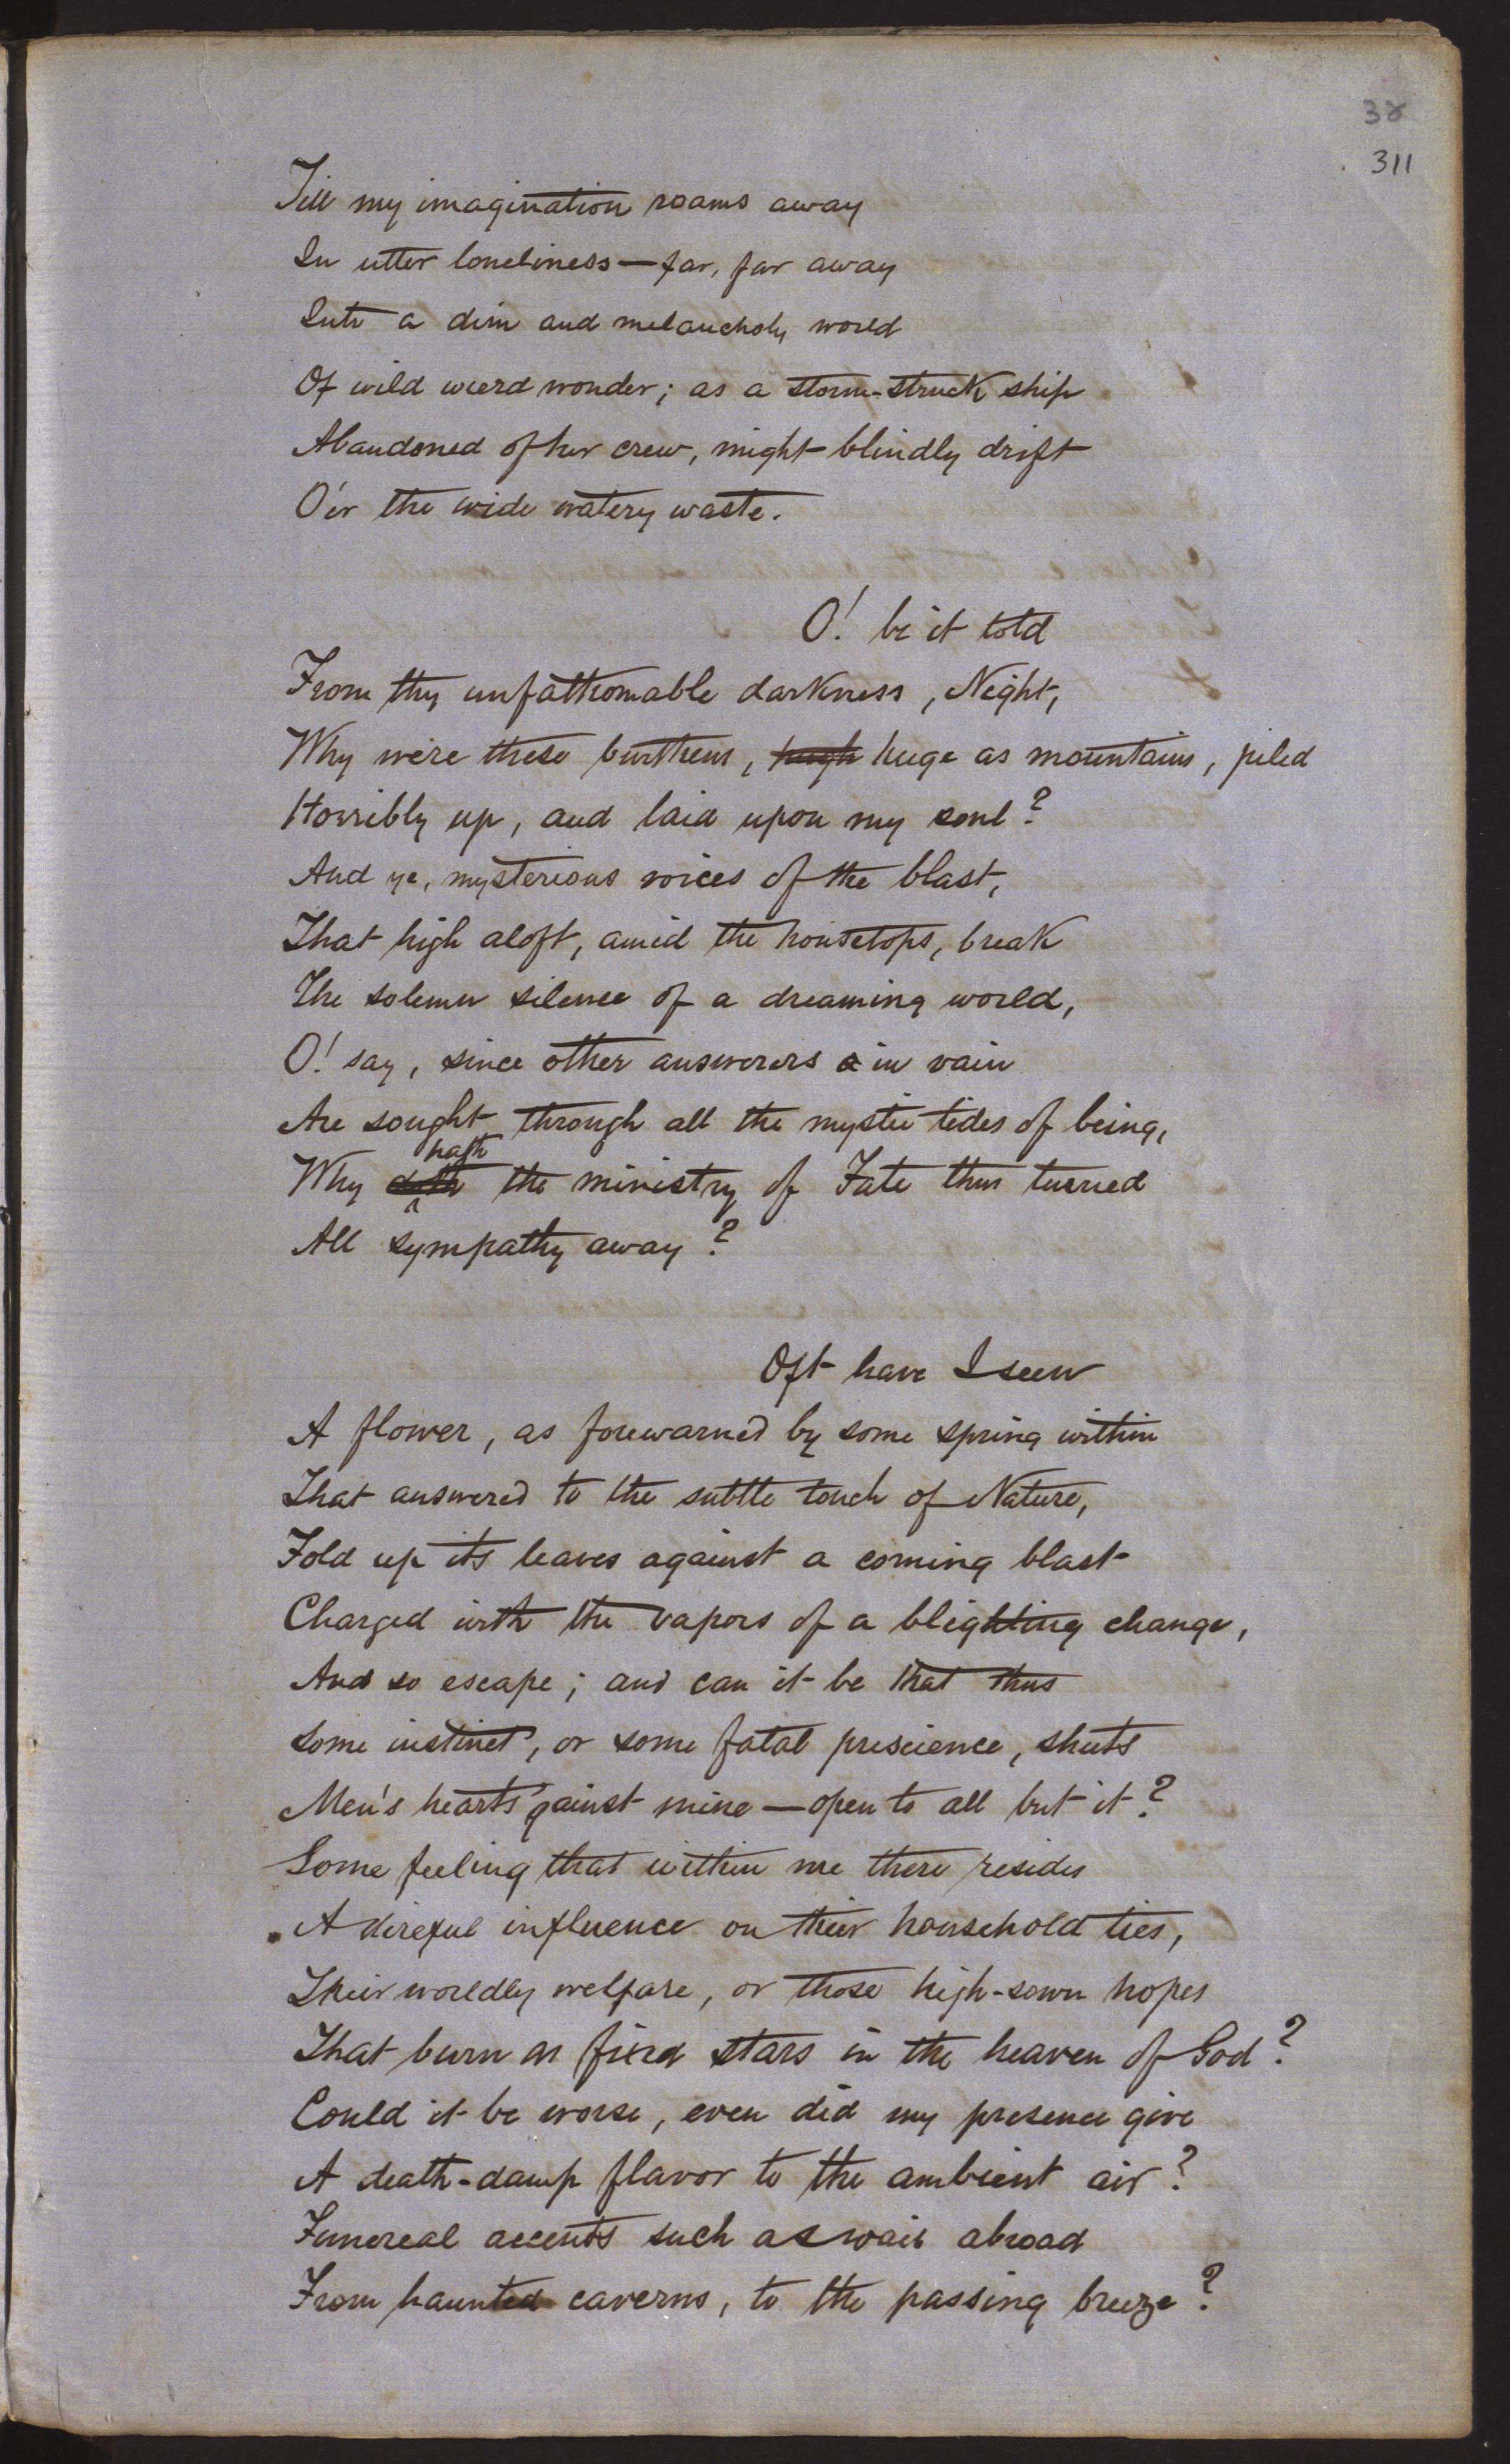 38
311
Till my imagination roams away
In utter loneliness—far, far away
Into a dim and melancholy world
Of wild wierd wonder; as a storm-struck ship
Abandoned of her crew, might blindly drift
O'er the wide watery waste.
O! be it told
From thy unfathomable darkness, Night,
Why were these burthens, hugh huge as mountains, piled
Horribly up, and laid upon my soul?
And ye, mysterious voices of the blast,
That high aloft, amid the housetops, break
The solemn silence of a dreaming world,
O! say, since other answerers in vain
Are sought through all the mystic tides of being,
hath
Why doth the ministry of Fate thus turned
All sympathy away?
Oft have I seen
A flower, as forewarned by some spring within
That answered to the subtle touch of Nature,
Fold up its leaves against a coming blast
Charged with the vapors of a blighting change,
And so escape; and can it be that thus
Some instinct, or some fatal prescience, shuts
Men's hearts 'gainst mine—open to all but it?
Some feeling that within me there resides
A direful influence on their household ties,
Their worldly welfare, or those high-sown hopes
That burn as fixed stars in the heaven of God?
Could it be worse, even did my presence give
A death-damp flavor to the ambient air?
Funereal accents such as wail abroad
From haunted caverns, to the passing breeze?